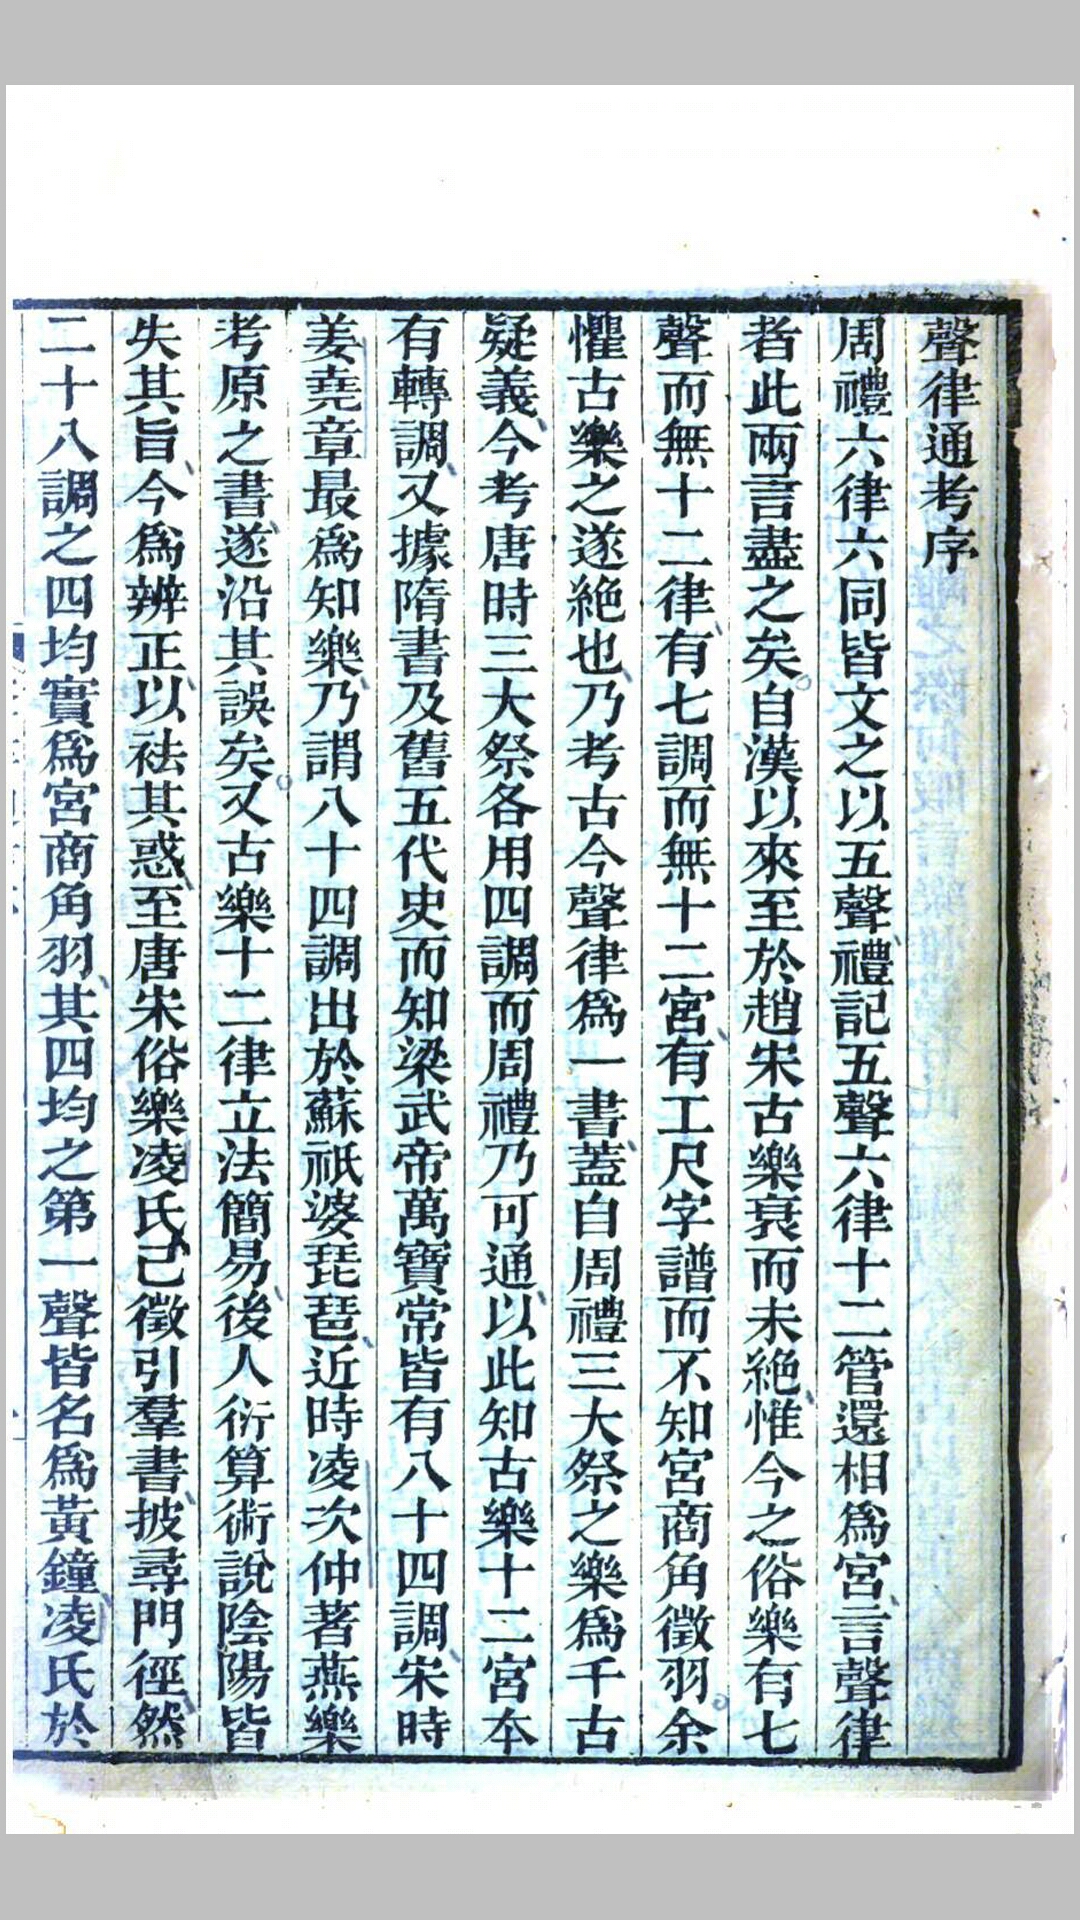 聲律通考序
周禮六律六同皆文之以五聲禮記五聲六律十二管還相爲宮言聲律
者此兩言盡之矣自漢以來至於趙宋古樂衰而未絶惟今之俗樂有七
聲而無十二律有七調而無十二宮有工尺字譜而不知宮商角徵羽余
懼古樂之遂絶也乃考古今聲律爲一書蓋自周禮三大祭之樂爲千古
疑義今考唐時三大祭各用四調而周禮乃可通以此知古樂十二宮本
有轉調又據隋書及舊五代史而知梁武帝萬寶常皆有八十四調宋時
姜堯章最爲知樂乃謂八十四調出於蘇祇婆琵琶近時凌次仲著燕樂
考原之書遂沿其誤矣又古樂十二律立法簡易後人衍算術說陰陽皆
失其旨今爲辨正以袪其惑至唐宋俗樂凌氏已徵引羣書披尋門徑然
二十八調之四均實爲宮商角羽其四均之第一聲皆名爲黃鐘凌氏於